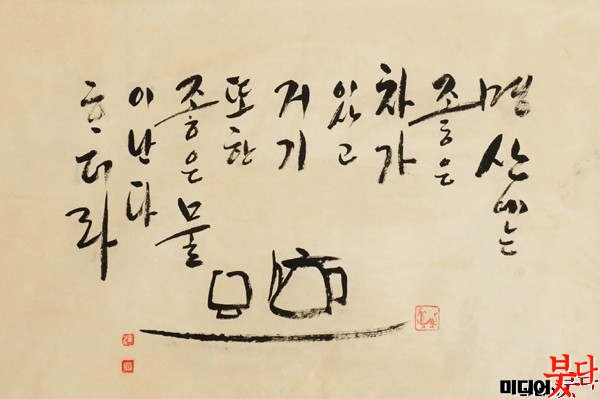 명산에는
좋은
차가
있고
거기
또한
좋은물
이난다
ᄒᆞ더라
미디어붓다